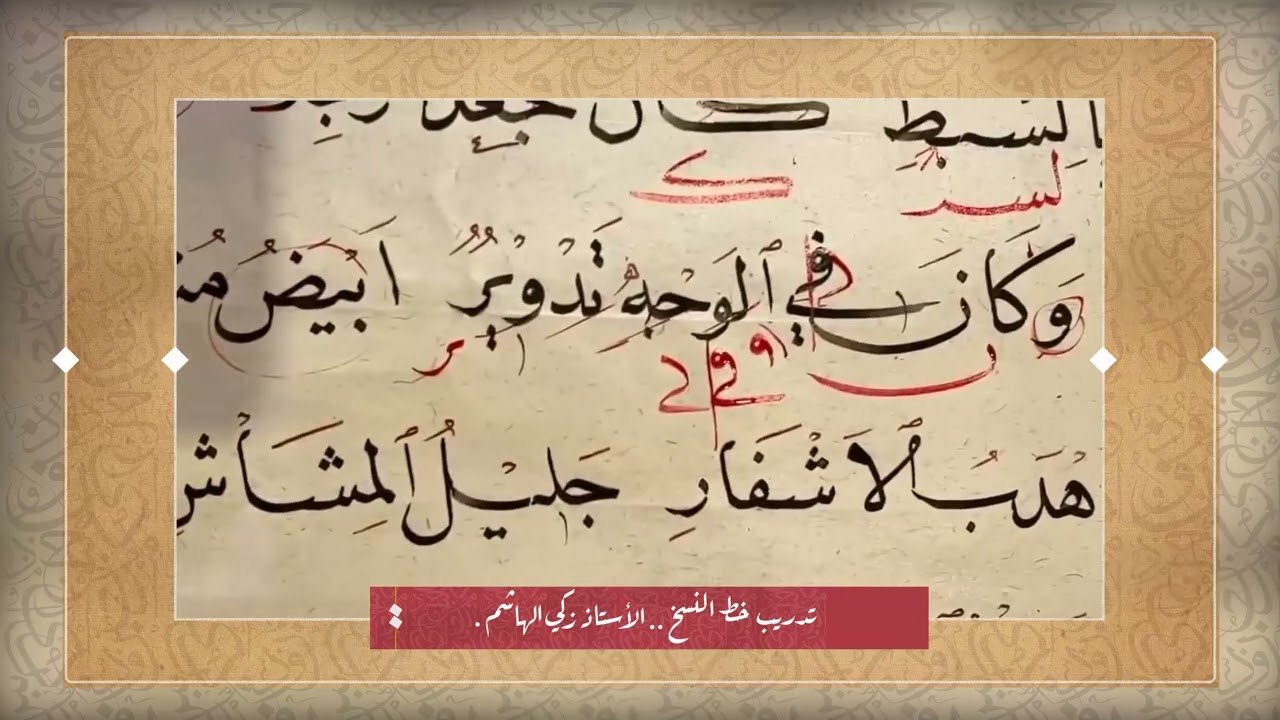 السبط كان جعدا
لسر
ك
وَكَانَ فِي ٱلْوَجْهِ تَدْوِيرٌ اَبْيَضُ
ر
هَدَبُ ٱلْاَشْفَارِ جَلِيلُ ٱلْمِشَاشِ
تدريب خط النسخ .. الأستاذ زكي الهاشم .